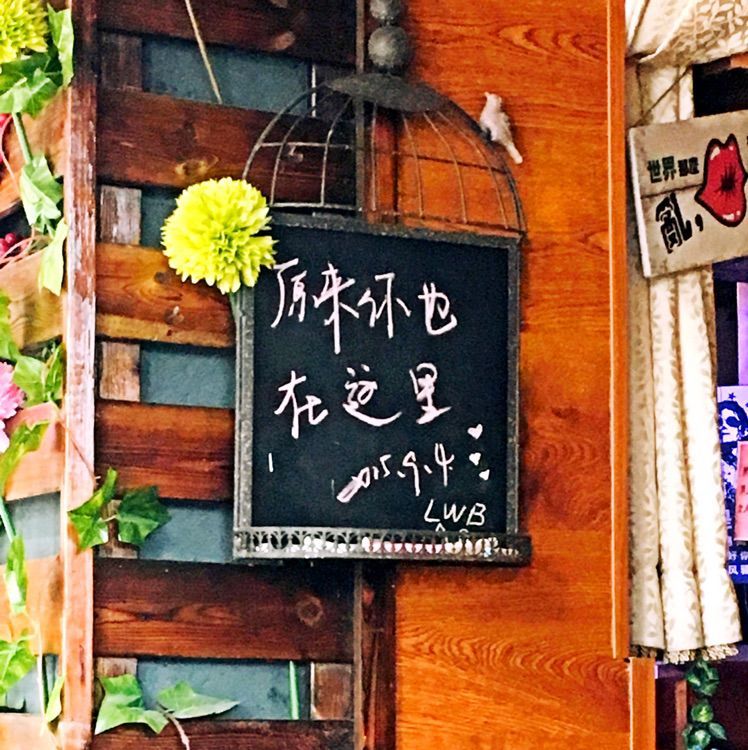 原来你也
在这里
2015.9.4.
LWB
世界那麼
亂,
好你
风骚